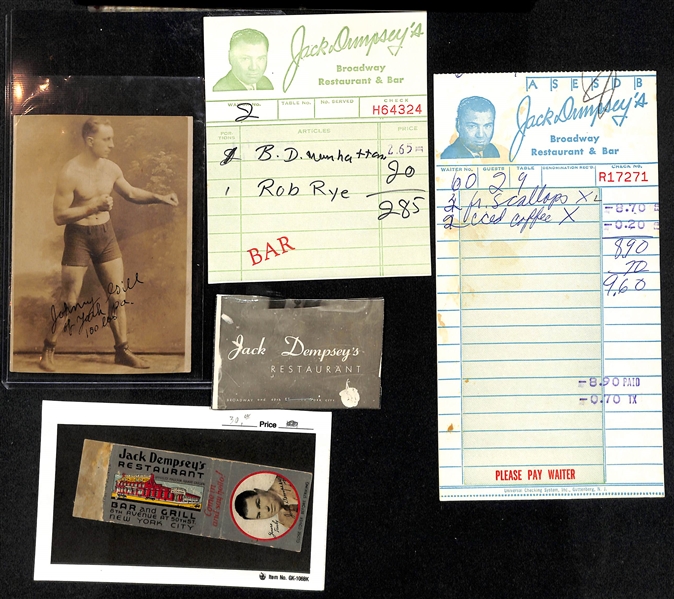 Jack Dempsey's
Broadway
Restaurant & Bar
WAITER NO.
TABLE NO.
NO. SERVED
CHECK
2
H64324
POR-
TIONS
ARTICLES
PRICE
B. D. Manhattan
2.65
20
1 Rob Rye
285
BAR
A S E S D B
Jack Dempsey's
Broadway
Restaurant & Bar
WAITER NO.
GUESTS
TABLE
CHECK NO.
60 2 9
R17271
2 fr. Scallops X
-8.70
2 iced coffee X
-0.20
890
70
9.60
-8.90 PAID
-0.70 TX
PLEASE PAY WAITER
Universal Checking System, Inc., Guttenberg, N. J.
Johnny Gill
of York Pa.
100 lbs
Jack Dempsey's
RESTAURANT
Price
Jack Dempsey's
RESTAURANT
BAR AND GRILL
8TH AVENUE AT 50TH ST.
NEW YORK
CITY
Item No. GK-106BK